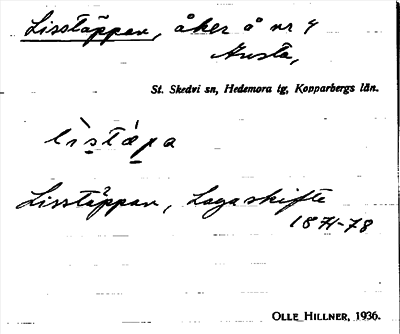 Lisstäppan, åker å nr 4
Avsta,
St. Skedvi sn, Hedemora tg, Kopparbergs län.
lìstȧpa
Lisstäppan, Lagaskifte
1871-78
OLLE HILLNER, 1936.